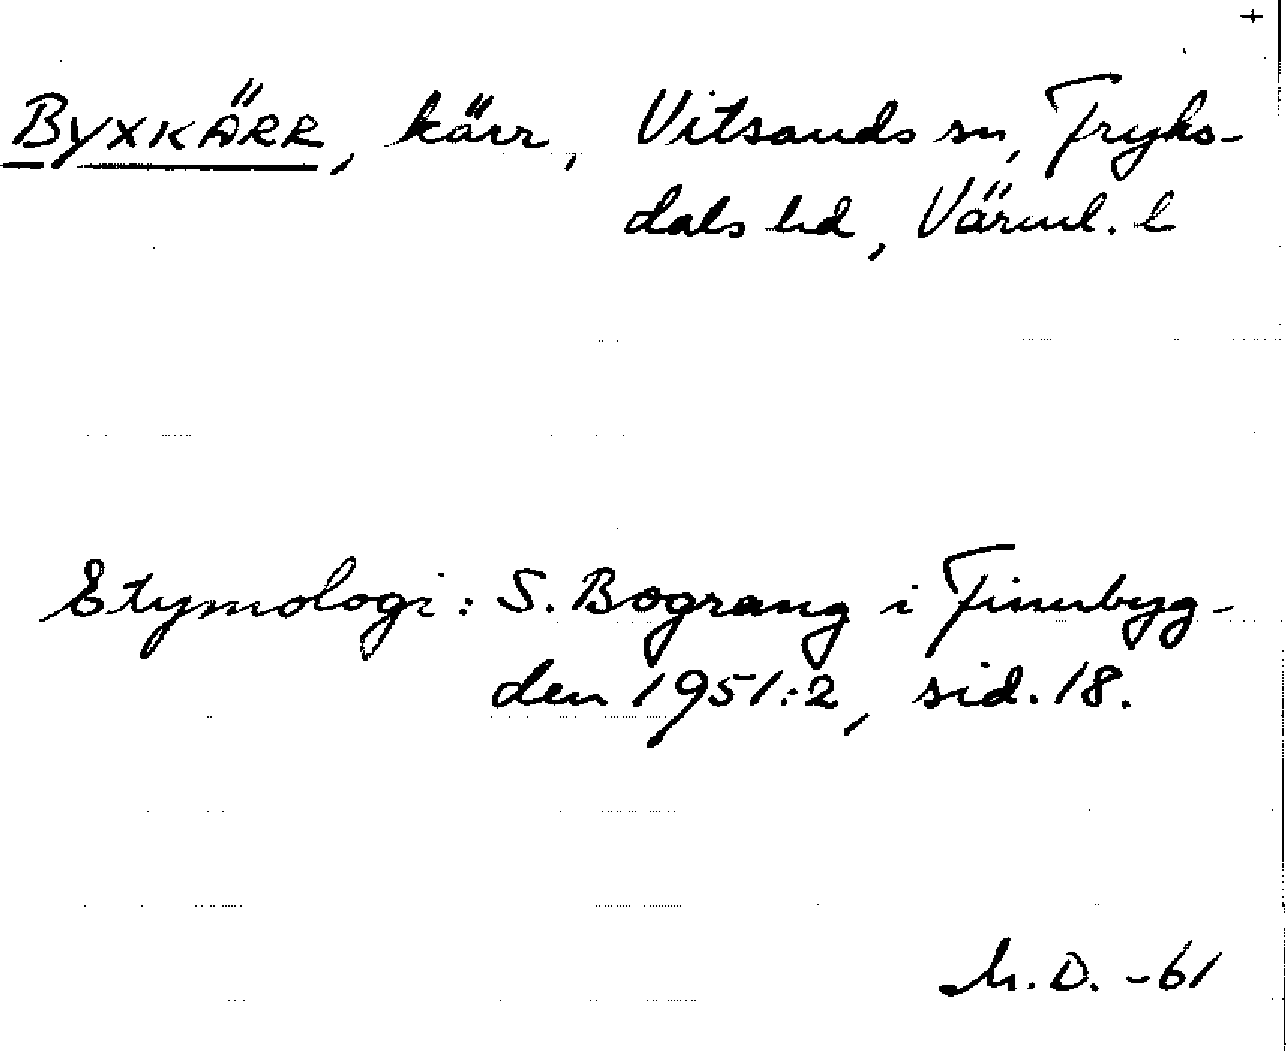 +
BYXKÄRR, kärr, Vitsands sn, Fryks-
dals hd, Värml. l
Etymologi: S. Bograng i Finnbyg-
den 1951:2, sid. 18.
M.D. -61